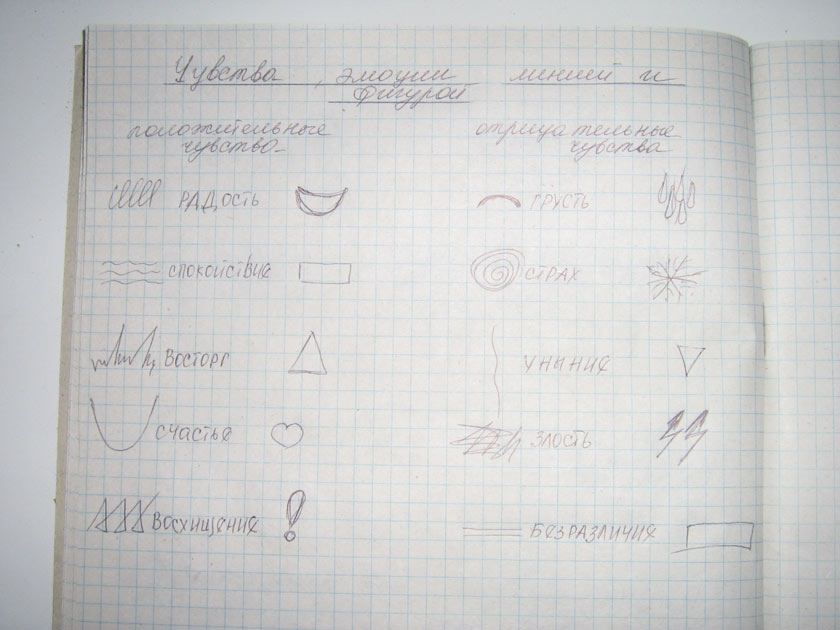 Чувства, эмоции линией и
фигурой
положительные
чувства
отрицательные
чувства
РАДОСТЬ
ГРУСТЬ
СПОКОЙСТВИЕ
СТРАХ
ВОСТОРГ
УНЫНИЕ
СЧАСТЬЕ
ЗЛОСТЬ
ВОСХИЩЕНИЕ
БЕЗРАЗЛИЧИЕ